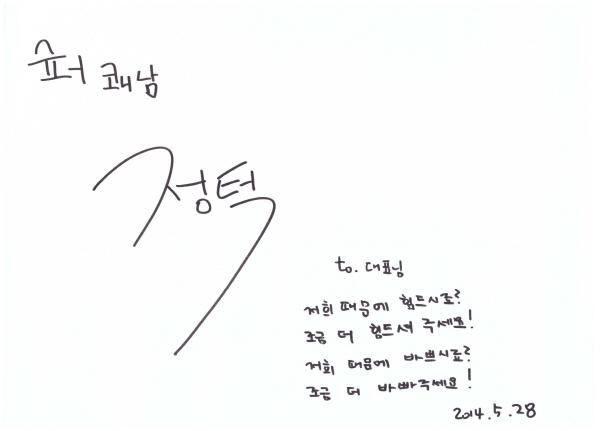 슈퍼 쾌남
정텍
to. 대표님
저희 때문에 힘드시죠?
조금 더 힘드셔 주세요!
저희 때문에 바쁘시죠?
조금 더 바빠주세요!
2014.5.28